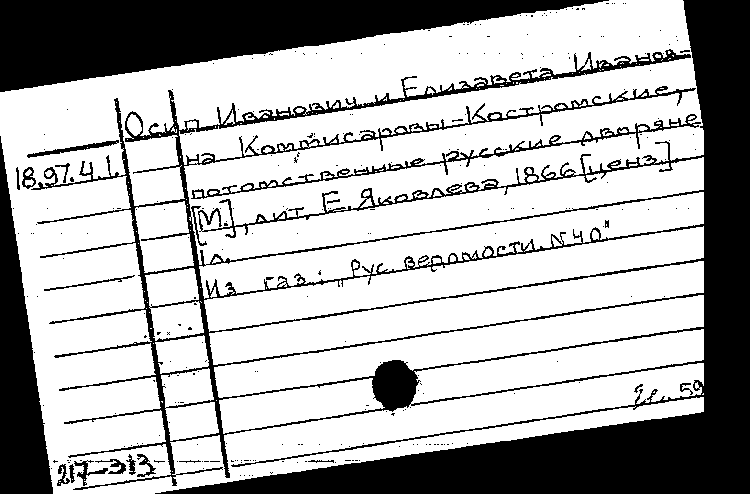 Осип Иванович и Елизавета Иванов-
18.97.4.1. на Коммисаровы-Костромские,
потомственные русские дворяне
[М.], лит. Е. Яковлева, 1866 [ценз.].
1 л.
Из газ.: „Рус. ведомости. N 40."
59
217-313